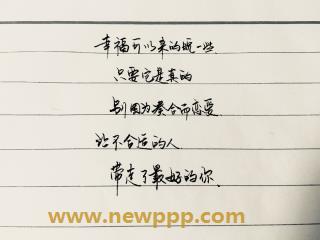 幸福可以来的晚一些
只要它是真的
别因为凑合而恋爱
让不合适的人
带走了最好的你
www.newppp.com